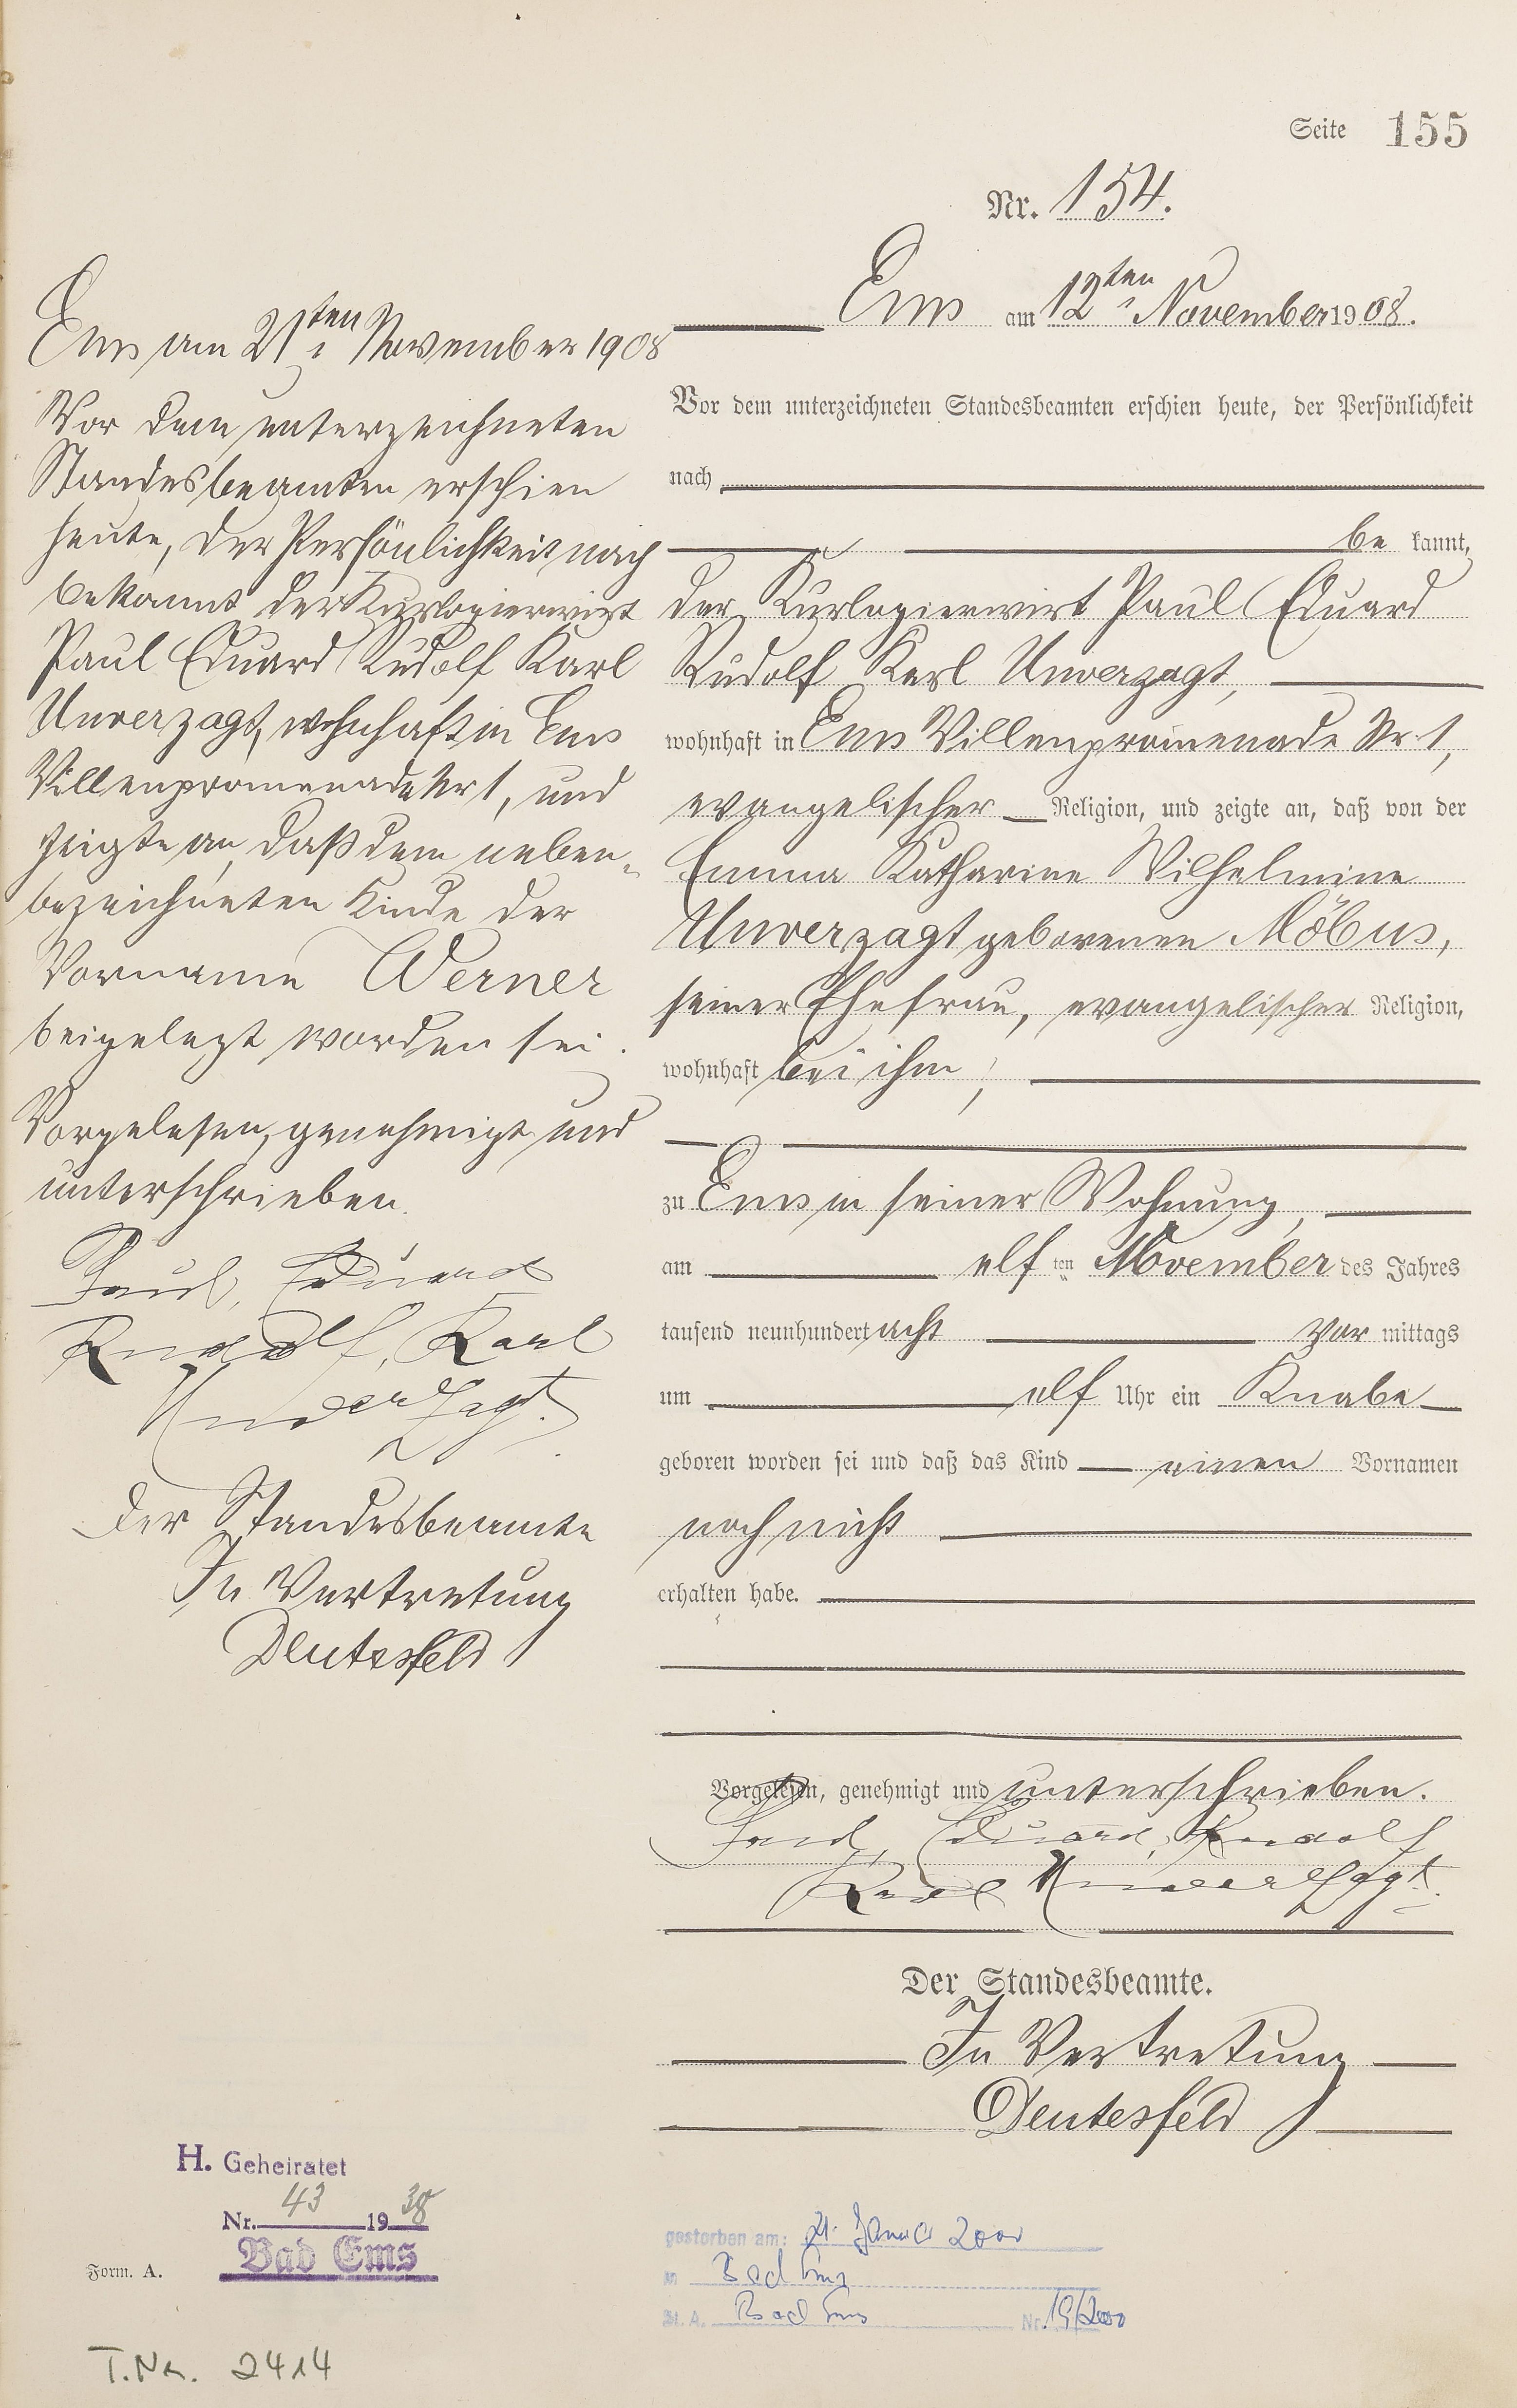 Seite 155
Nr. 154.
Ems am 12ten November 1908.
Vor dem unterzeichneten Standesbeamten erschien heute, der Persönlichkeit
nach
be kannt,
der Kurlogierwirt Paul Eduard
Rudolf Karl Unverzagt,
wohnhaft in Ems Villenpromenade Nr. 1,
evangelischer Religion, und zeigte an, daß von der
Emma Katharine Wilhelmine
Unverzagt geborenen Möbus,
seiner Ehefrau, evangelischer Religion,
wohnhaft bei ihm,
zu Ems in seiner Wohnung,
am elf ten November des Jahres
tausend neunhundert acht vor mittags
um elf Uhr ein Knabe
geboren worden sei und daß das Kind einen Vornamen
noch nicht
erhalten habe.
Vorgelesen, genehmigt und unterschrieben.
Paul, Eduard, Rudolf
Karl Unverzagt.
Der Standesbeamte.
In Vertretung
Deutesfeld
Ems am 21ten November 1908
Vor dem unterzeichneten
Standesbeamten erschien
heute, der Persönlichkeit nach
bekannt der Kurlogierwirt
Paul Eduard Rudolf Karl
Unverzagt, wohnhaft in Ems
Villenpromenade Nr 1, und
zeigte an, daß dem neben-
bezeichneten Kinde der
Vorname Werner
beigelegt worden sei.
Vorgelesen, genehmigt und
unterschrieben.
Paul, Eduard
Rudolf, Karl
Unverzagt.
Der Standesbeamte
In Vertretung
Deutesfeld
H. Geheiratet
Nr. 43 1938
Bad Ems
Form. A.
T.Nr. 2414
gestorben am: 21. Januar 2000
in Bad Ems
St. A. Bad Ems Nr. 19/2000